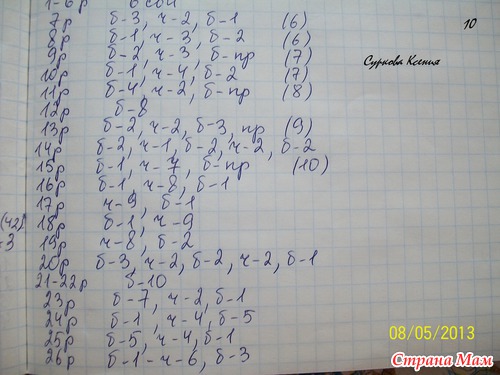 1-6р б сбн
7р б-3, ч-2, б-1 (6)
8р б-1, ч-3, б-2 (6)
9р б-2, ч-3, б-пр (7)
10р б-1, ч-4, б-2 (7)
11р б-4, ч-2, б-пр (8)
12р б-8
13р б-2, ч-2, б-3, пр (9)
14р б-2, ч-1, б-2, ч-2, б-2
15р б-1, ч-7, б-пр (10)
16р б-1, ч-8, б-1
17р ч-9, б-1
(42) 18р б-1, ч-9
-3 19р ч-8, б-2
20р б-3, ч-2, б-2, ч-2, б-1
21-22р б-10
23р б-7, ч-2, б-1
24р б-1, ч-4, б-5
25р б-5, ч-4, б-1
26р б-1-ч-6, б-3
10
Суркова Ксения
08/05/2013
Страна Мам